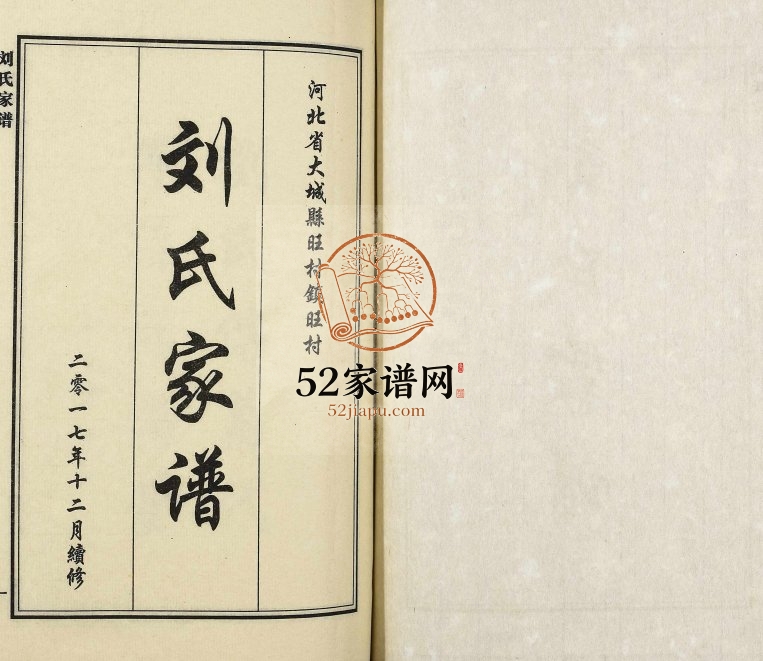 河北省大城縣旺村鎮旺村
刘氏家谱
二零一七年十二月續修
刘氏家谱
52家谱网
52jiapu.com